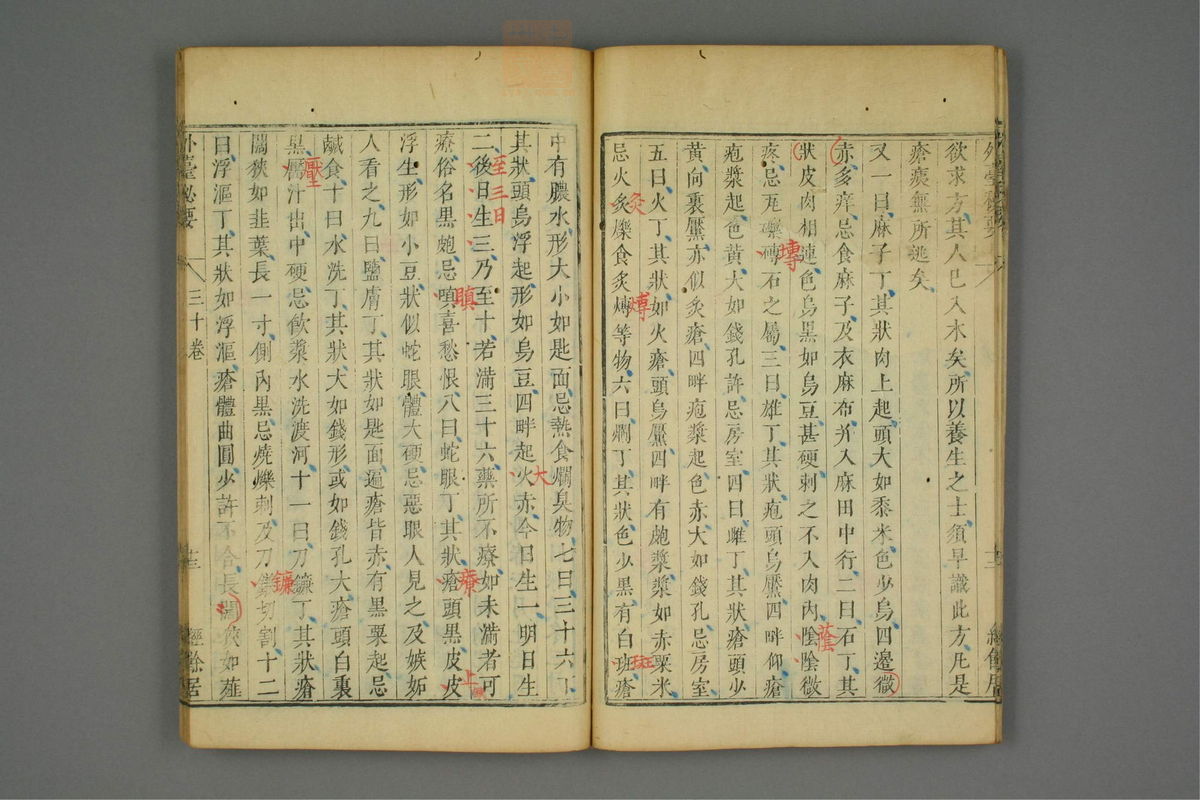 欲求方其人已入木矣所以養生之士須早識此方凡是
瘡痍無所逃矣
又一曰麻子丁其狀肉上起頭大如黍米色少烏四邊微
赤多痒忌食麻子及衣麻布并入麻田中行二曰石丁其
狀皮肉相連色烏黑如烏豆甚硬刺之不入肉內陰陰微
疼忌瓦礫磚石之屬三曰雄丁其狀疱頭烏黶四畔仰瘡
疱漿起色黃大如錢孔許忌房室四曰雌丁其狀瘡頭少
黃向裏黶亦似灸瘡四畔疱漿起色赤大如錢孔忌房室
五曰火丁其狀如火瘡頭烏黶四畔有疱漿漿如赤粟米
忌火炙爍食炙煿等物六曰爛丁其狀色少黑有白斑瘡
中有膿水形大小如匙面忌熱食爛臭物七曰三十六丁
其狀頭烏浮起形如烏豆四畔起火赤今日生一明日生
二後日生三乃至十若滿三十六藥所不療如未滿者可
療俗名黑皰忌嗔喜愁恨八曰蛇眼丁其狀瘡頭黑皮皮
浮生形如小豆狀似蛇眼體大硬忌惡眼人見之及嫉妬
人看之九曰鹽膚丁其狀如匙面遍瘡皆赤有黑粟起忌
鹹食十曰水洗丁其狀大如錢形或如錢孔大瘡頭白裏
黑黶汁出中硬忌飲漿水洗渡河十一曰刀鐮丁其狀瘡
闊狹如韭葉長一寸側內黑忌燒爍刺及刀鐮切割十二
曰浮漚丁其狀如浮漚瘡體曲圓少許不合長闊狹如薤
外臺秘要
三十卷
十三
經餘居
灸
煿
塼
蔭
斑
大
至三日
嗔
療
上
鐮
壓